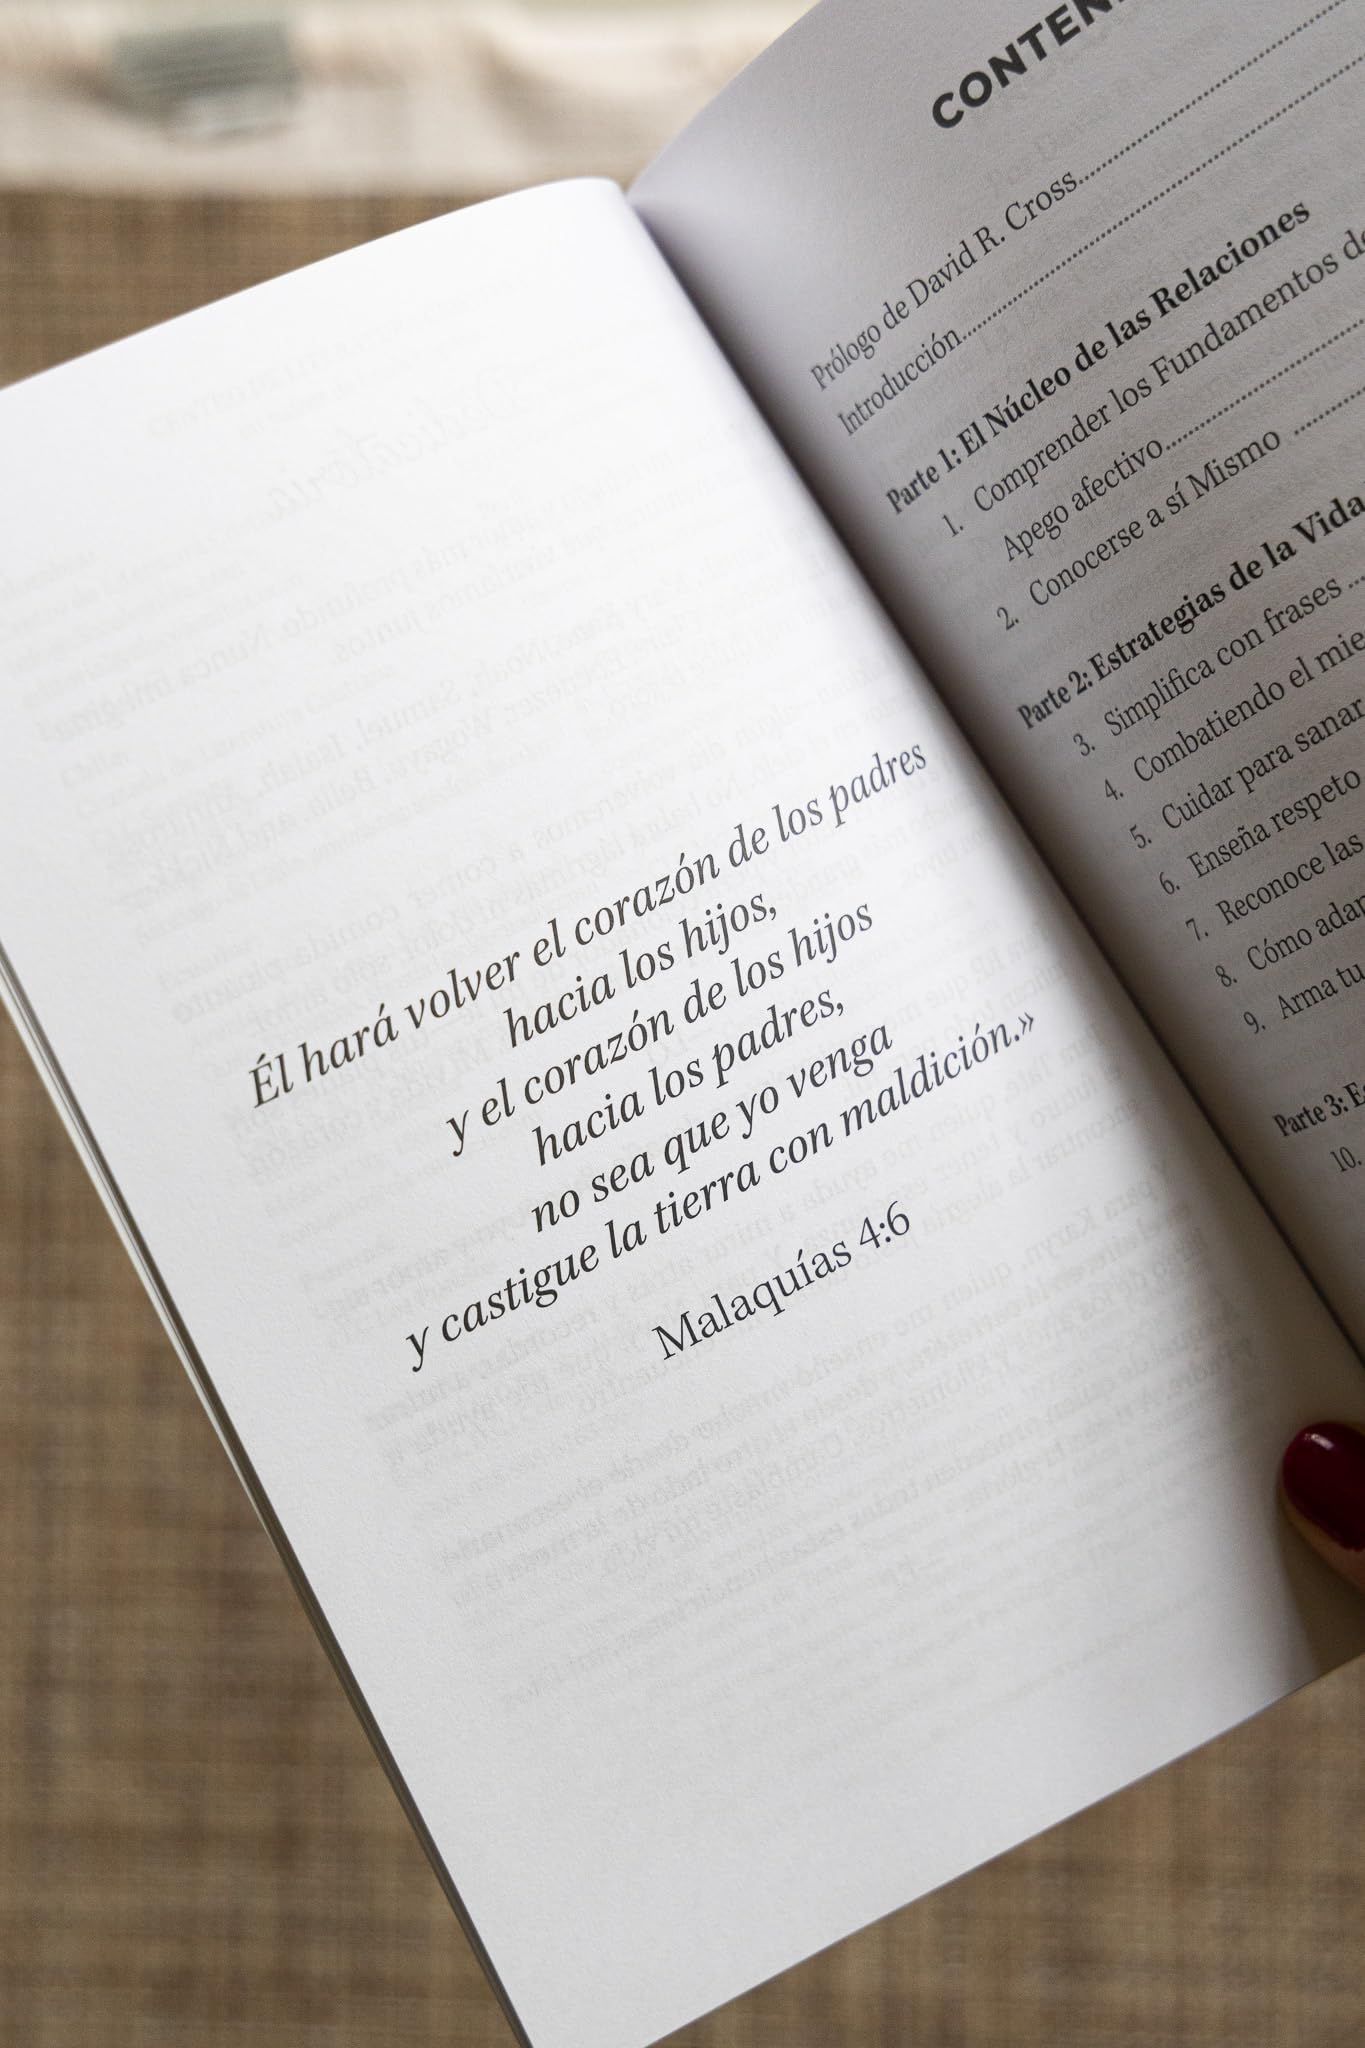 Él hará volver el corazón de los padres
hacia los hijos,
y el corazón de los hijos
hacia los padres,
no sea que yo venga
y castigue la tierra con maldición.»
Malaquías 4:6
Prólogo de David R. Cross
Introducción
Parte 1: El Núcleo de las Relaciones
1. Comprender los Fundamentos
Apego afectivo
2. Conocerse a sí Mismo
Parte 2: Estrategias de la Vida
3. Simplifica con frases
4. Combatiendo el
5. Cuidar para sanar
6. Enseña respeto
7. Reconoce las
8. Cómo
9. Arma tu
Parte 3:
10.